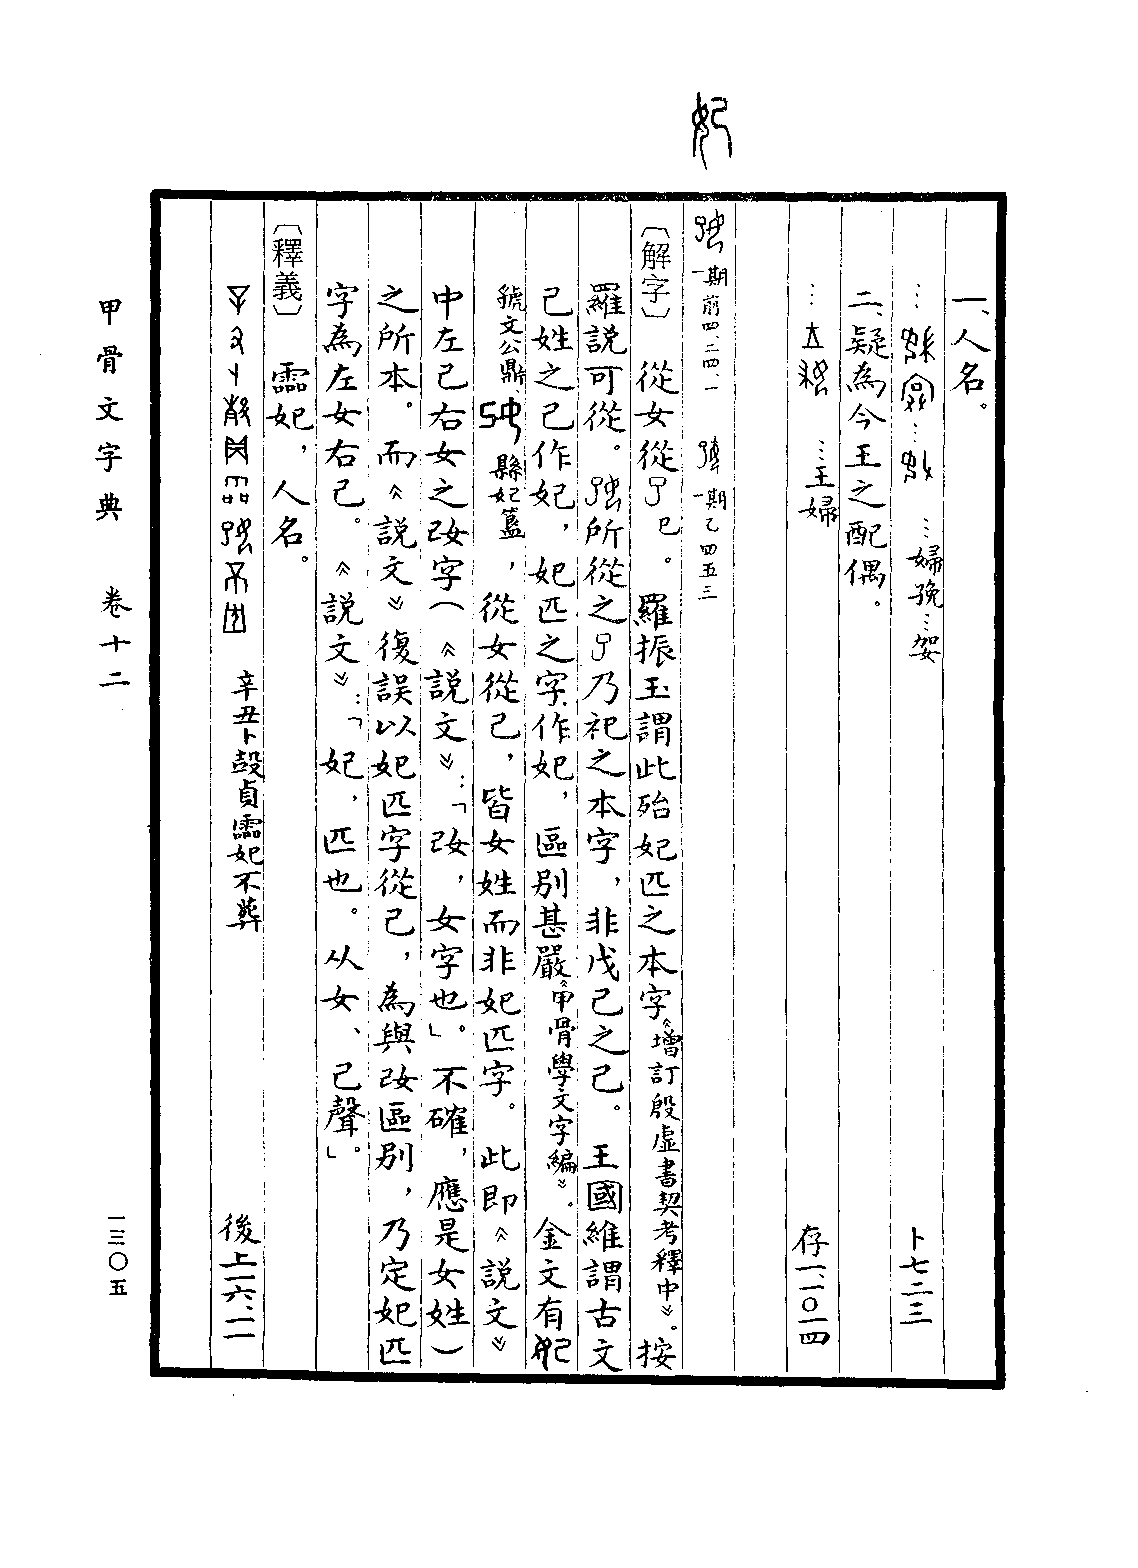 妃
一、人名。
… … …婦㝃…㚙 卜七二三
二、疑為今王之配偶。
… …王婦 存一、一〇一四
一期前四、二四、一 一期乙四五三
〔解字〕 從女從巳。羅振玉謂此殆妃匹之本字《增訂殷虛書契考釋中》。按
羅説可從。所從之乃祀之本字，非戊己之己。王國維謂古文
己姓之己作妃，妃匹之字作妃，區别甚嚴《甲骨學文字編》。金文有
虢文公鼎 縣妃簋，從女從己，皆女姓而非妃匹字。此即《説文》
中左己右女之改字（《説文》：「改，女字也」。不確，應是女姓）
之所本。而《説文》復誤以妃匹字從己，為與改區别，乃定妃匹
字為左女右己。《説文》：「妃，匹也。从女、己聲」。
〔釋義〕 霝妃，人名。
辛丑卜㱿貞霝妃不葬 後上一六、一一
甲骨文字典 卷十二 一三〇五